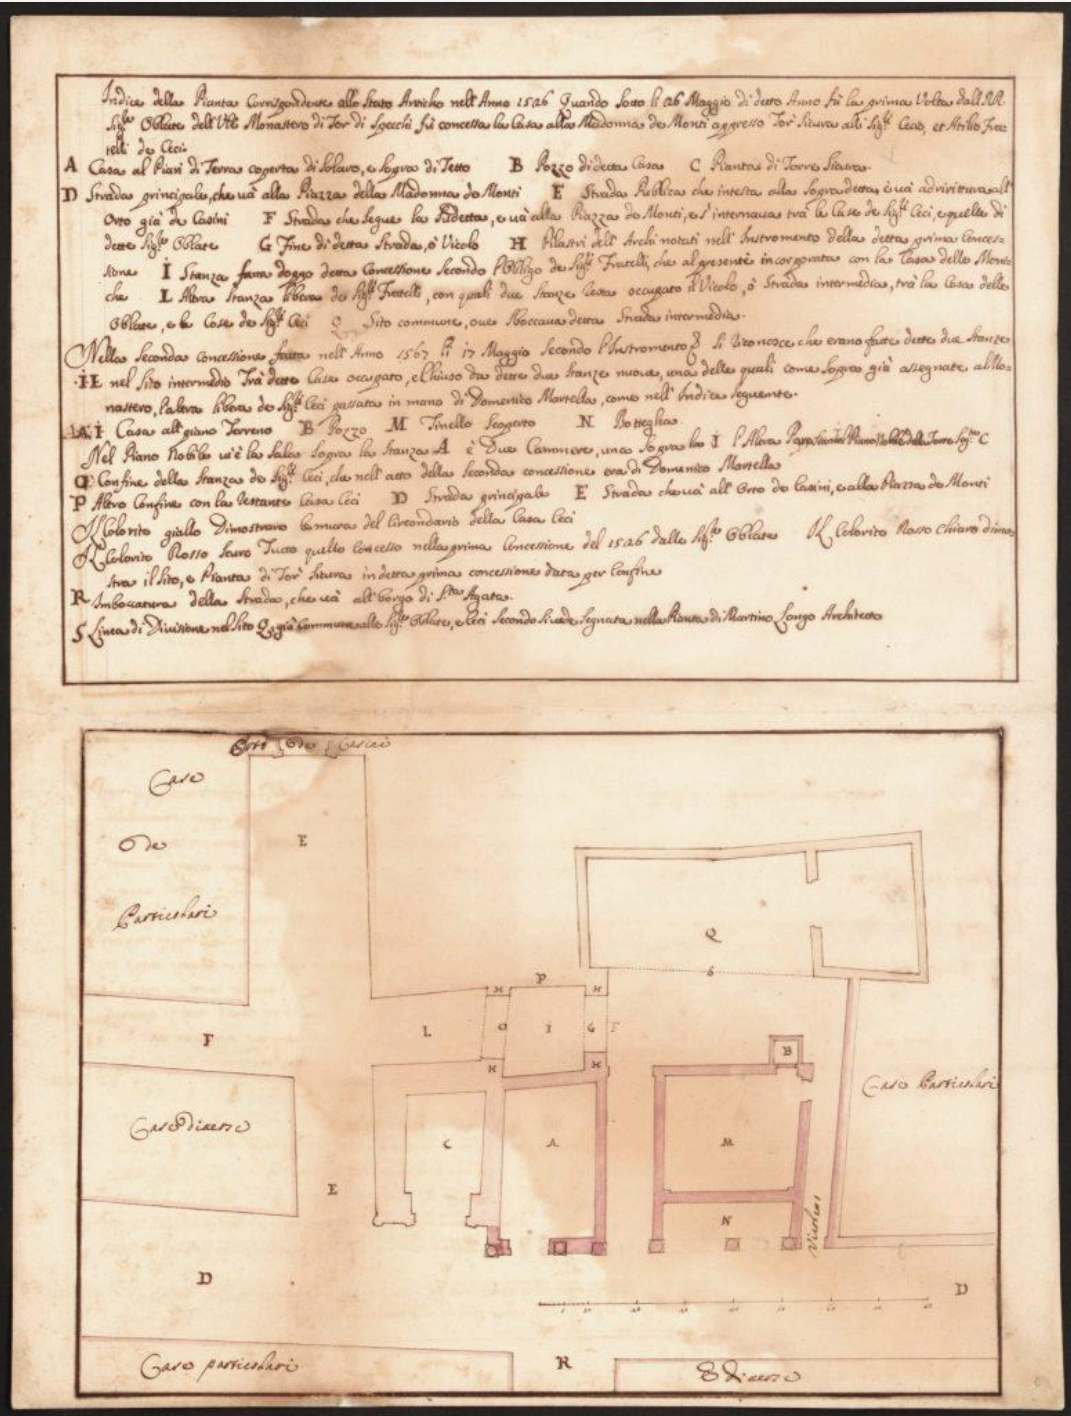 Indice della Pianta Corrispondente allo Stato Anticho nell'Anno 1526 Quando Sotto li 26 Maggio di detto Anno fù la prima Volta dall RR.
Sig.re Oblate dell' Monastero di Tor di Specchi fù concessa la Casa alla Madonna de Monti appresso Tor' Sicura alli Sig.ri Cecio, et Atilio Fra=
telli de Ceci.
A Casa al Piari di Terra coperta di Solaro, e Sopra di Tetto B Pozzo di detta Casa C Pianta di Torre Sicura.
D Strada principale, che và alla Piazza della Madonna de Monti E Strada Publica che intesta alla Sopradetta, e và adririttura all'
Orto già de Casini F Strada che segue la Sudetta, e và alla Piazza de Monti, e s'internava trà le Case de Sig.ri Ceci, e quelle di
dette Sig.re Oblate G Fine di detta Strada, ò Vicolo H Pilastri dell' Archi notati nell' Instromento della detta prima Conces=
sione I Stanza fatta doppo detta Concessione Secondo l'Obligo de Sig.ri Fratelli, che al presente incorporata con la Casa delle Moni=
che L Altra Stanza libera de Sig.ri Fratelli, con quali due Stanze resta occupato il Vicolo, ò Strada intermedia, trà la Casa delle
Oblate, e le Case de Sig.ri Ceci Q Sito commune, oue Sboccaua detta Strada intermedia.
Nella Seconda concessione fatta nell' Anno 1567 li 17 Maggio Secondo l'Instromento Si riconosce che erano fatte dette due Stanze
I L nel Sito intermedio Trà dette Case occupato, e Chiuso da dette due Stanze nuove, una delle quali come Sopra già assegnate al Mo=
nastero, l'altra libera de Sig.ri Ceci passata in mano di Domenico Martella, come nell' Indice Seguente.
A I Casa all piano Terreno B Pozzo M Tinello Scoperto N Botteghe.
Nel Piano Nobile vi è la Sala Sopra la Stanza A è Due Cammere, una Sopra la I l'Altra Sopra C
O Confine della Stanza de Sig.ri Ceci, che nell' atto della Seconda concessione era di Domenico Martella
P Altro Confine con la restante Casa Ceci D Strada principale E Strada che và all' Orto de Casini, e alla Piazza de Monti
Il Colorito giallo Dimostrano le mura del Circondario della Casa Ceci
Il Colorito Rosso Scuro Tutto quello Concesso nella prima Concessione del 1526 dalle Sig.re Oblate Il Colorito Rosso Chiaro dimo=
stra il Sito, e Pianta di Tor' Sicura in detta prima concessione data per Confine
R Imboccatura della Strada, che và all' borgo di S.ta Agata.
S Linea di Divisione nel Sito Q, già Commune alle Sig.re Oblate, e Ceci Secondo Si vede Segnata nella Pianta di Martino Longo Architetto
Orto de Casini
Case
de
Particulari
E
Q
S
P
H H
F L O I G F
H H
B
Case Particulari
Case diverse
C A M
E
N
Vicolo
D D
Case particulari R E diverse